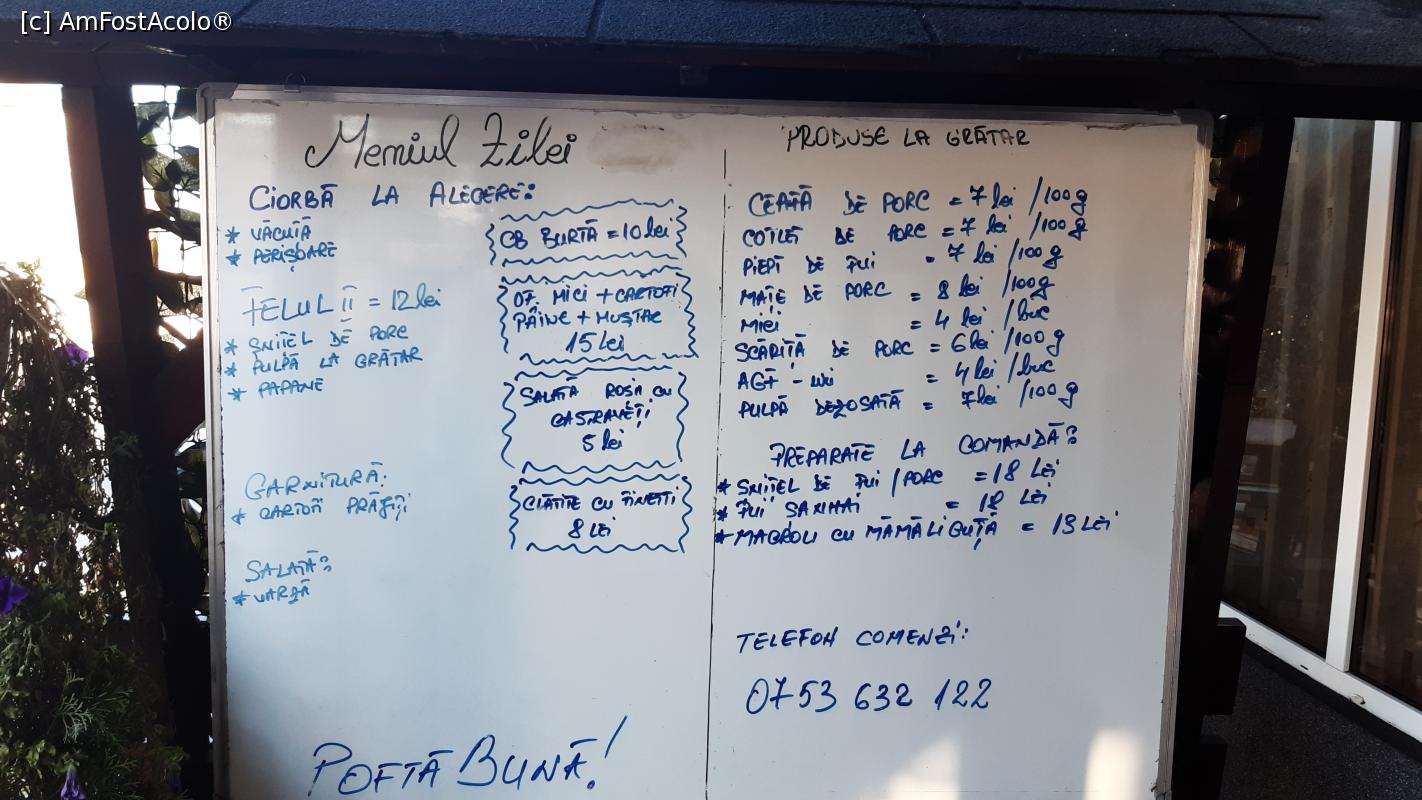 [c] AmFostAcolo®
Meniul Zilei
CIORBĂ LA ALEGERE:
* VĂCUȚĂ
* PERIȘOARE
FELUL II = 12 lei
* ȘNIȚEL DE PORC
* PULPĂ LA GRĂTAR
* PAPANE
GARNITURĂ:
* CARTOFI PRĂJIȚI
SALATĂ:
* VARZĂ
CB BURTĂ = 10 lei
07. MICI + CARTOFI
PÂINE + MUȘTAR
15 Lei
SALATĂ ROSII CU
CASTRAVEȚI
5 lei
CLĂTITE CU FINETTI
8 LEI
POFTĂ BUNĂ!
PRODUSE LA GRĂTAR
CEAFĂ DE PORC = 7 lei /100g
COTLET DE PORC = 7 lei /100g
PIEPT DE PUI = 7 lei /100g
MAȚE DE PORC = 8 lei /100g
MICI = 4 lei /buc
SCĂRIȚĂ DE PORC = 6 lei /100g
= 4 lei /buc
PULPĂ DEZOSATĂ = 7 lei /100g
PREPARATE LA COMANDĂ:
* SNIȚEL DE PUI / PORC = 18 LEI
* PUI SANHAI = 18 LEI
* MACROU CU MĂMĂLIGUȚĂ = LEI
TELEFON COMENZI:
0753 632 122